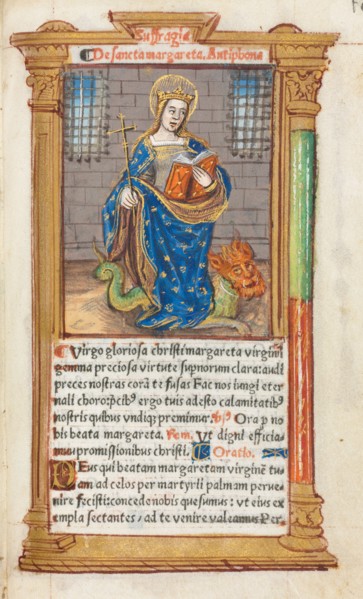 Suffragia
De sancta margareta. Antiphona
Virgo gloriosa christi margareta virginū
gemma preciosa virtute supnorum clara: audi
preces nostras corā te fusas Fac nos iungi eter
nali choro: pcib⁹ ergo tuis adesto calamitatib⁹
nostris quibus vndiq; premimur. Ora p no
bis beata margareta. Rem. Ut digni efficia
mur promissionibus christi. Oratio.
Deus qui beatam margaretam virginē tu
am ad celos per martyrii palmam perue
nire fecisti: concede nobis quesumus: vt eius ex
empla sectantes, ad te venire valeamus Per.